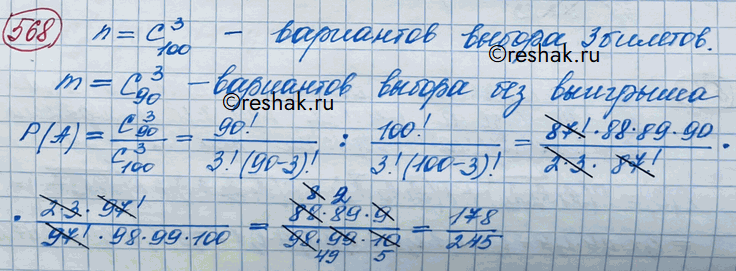 568 n = C³₁₀₀ – вариантов выбора 3 билетов.
©reshak.ru
m = C³₉₀ – вариантов выбора без выигрыша
©reshak.ru
P(A) = C³₉₀ / C³₁₀₀ = 90! / 3!(90-3)! : 100! / 3!(100-3)! = 87!·88·89·90 / 2·3·87! ·
· 2·3·97! / 97!·98·99·100 = 8 2 88·89·9 / 98·99·10 49 5 = 178 / 245
©reshak.ru